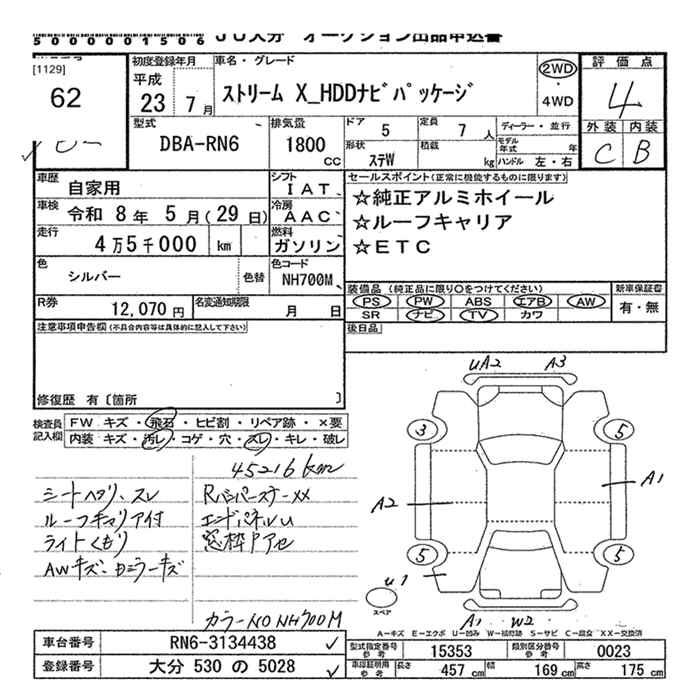 5000001506 JU大分 オークション出品申込書
[1129]
62
初度登録年月
平成
23 7月
車名・グレード
ストリーム X_HDDナビパッケージ
2WD
・
4WD
評価点
4
外装 内装
C B
型式
DBA-RN6
排気量
1800
CC
ドア 5
定員 7 人
ディーラー・並行
モデル年式 年
形状 ステW
積載 kg
ハンドル 左・右
車歴 自家用
シフト IAT
車検 令和 8年 5月(29日)
冷房 AAC
走行 4万5千000 km
燃料 ガソリン
色 シルバー 色替
色コード NH700M
R券 12,070円
名変通知期限 月 日
セールスポイント(正常に機能するものに限ります)
☆純正アルミホイール
☆ルーフキャリア
☆ETC
装備品(純正品に限り○をつけてください)
PS PW ABS エアB AW
SR ナビ TV カワ
新車保証書
有・無
後日品
注意事項申告欄(不具合内容等は具体的に記入して下さい)
修復歴 有〔箇所 〕
検査員記入欄
FW キズ・飛石・ヒビ割・リペア跡・×要
内装 キズ・汚レ・コゲ・穴・スレ・キレ・破レ
45216km
シートヘタリ、スレ
ルーフキャリア付
ライトくもり
AWキズ、ドミラーキズ
Rバンパースナー××
エンドパネルU
窓枠Pアセ
カラーNO NH700M
UA2 A3
3 5
A2 A1
5 5
U1
スペア
A1 W2
A-キズ E-エクボ U-凹み W-補修跡 S-サビ C-腐食 XX-交換済
車台番号 RN6-3134438
登録番号 大分 530 の 5028
型式指定番号 参考 15353
類別区分番号 参考 0023
車印証明用 参考 長さ 457 cm 幅 169 cm 高さ 175 cm